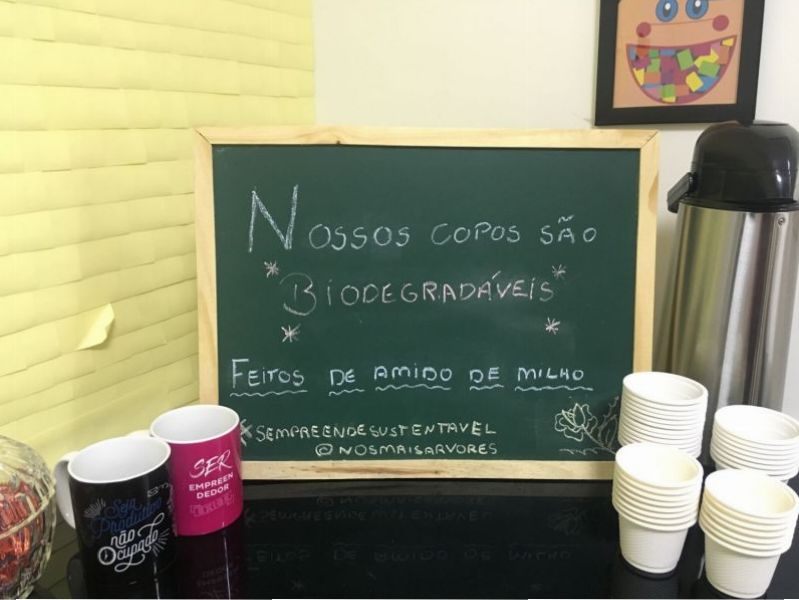 NOSSOS COPOS SÃO
* BIODEGRADÁVEIS *
* *
FEITOS DE AMIDO DE MILHO
#SEMPREENDESUSTENTAVEL
@NOSMAISARVORES
Seja
Produtivo
não
Ocupado
SER
EMPREEN
DEDOR